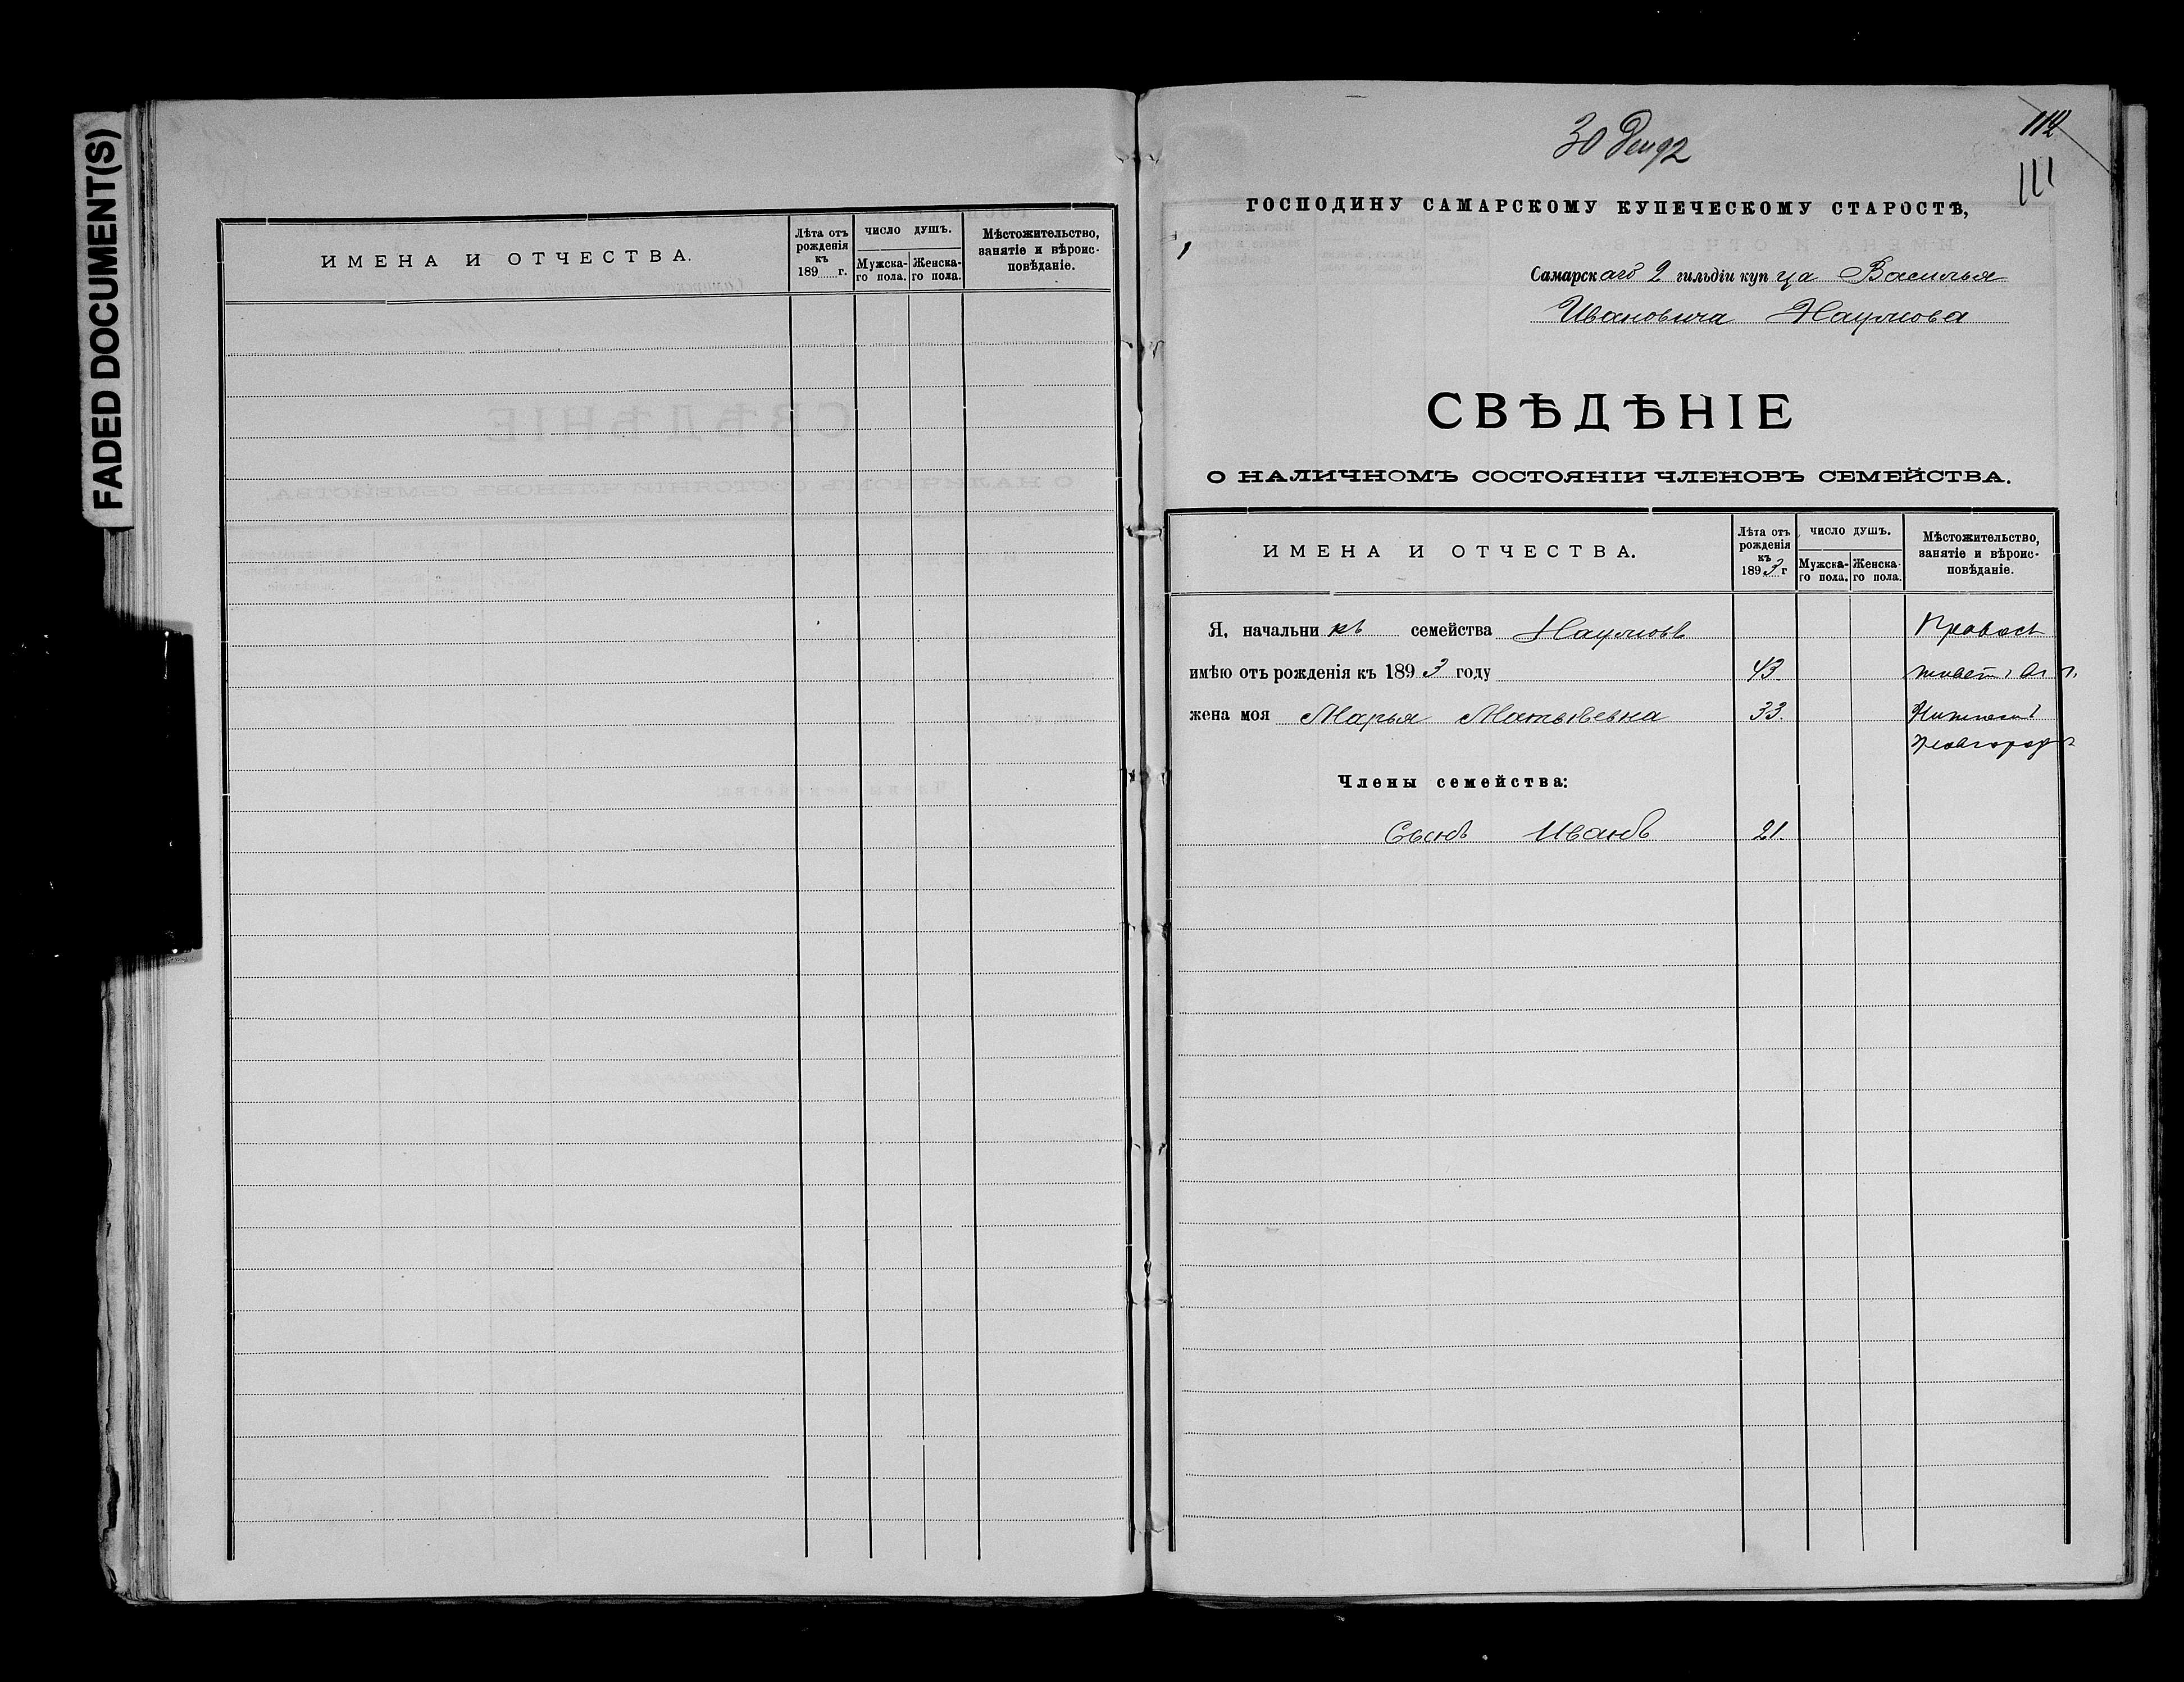 FADED DOCUMENT(S)
ИМЕНА И ОТЧЕСТВА.
Лѣта отъ рожденія къ 189 г.
ЧИСЛО ДУШЪ.
Мужска-го пола.
Женска-го пола.
Мѣстожительство, занятіе и вѣроис-повѣданіе.
112
111
30 Дек 92
ГОСПОДИНУ САМАРСКОМУ КУПЕЧЕСКОМУ СТАРОСТѢ,
Самарскаго 2 гильдіи купца Василья
Ивановича Наумова
СВѢДѢНІЕ
О НАЛИЧНОМЪ СОСТОЯНІИ ЧЛЕНОВЪ СЕМЕЙСТВА.
ИМЕНА И ОТЧЕСТВА.
Лѣта отъ рожденія къ 1893 г
ЧИСЛО ДУШЪ.
Мужска-го пола.
Женска-го пола.
Мѣстожительство, занятіе и вѣроис-повѣданіе.
Я, начальникъ семейства Наумовъ Правосл
имѣю отъ рожденія къ 1893 году 43. живет
жена моя Марья Матвѣевна 33. Нижнемъ
Новгородѣ
Члены семейства:
Сынъ Иванъ 21.